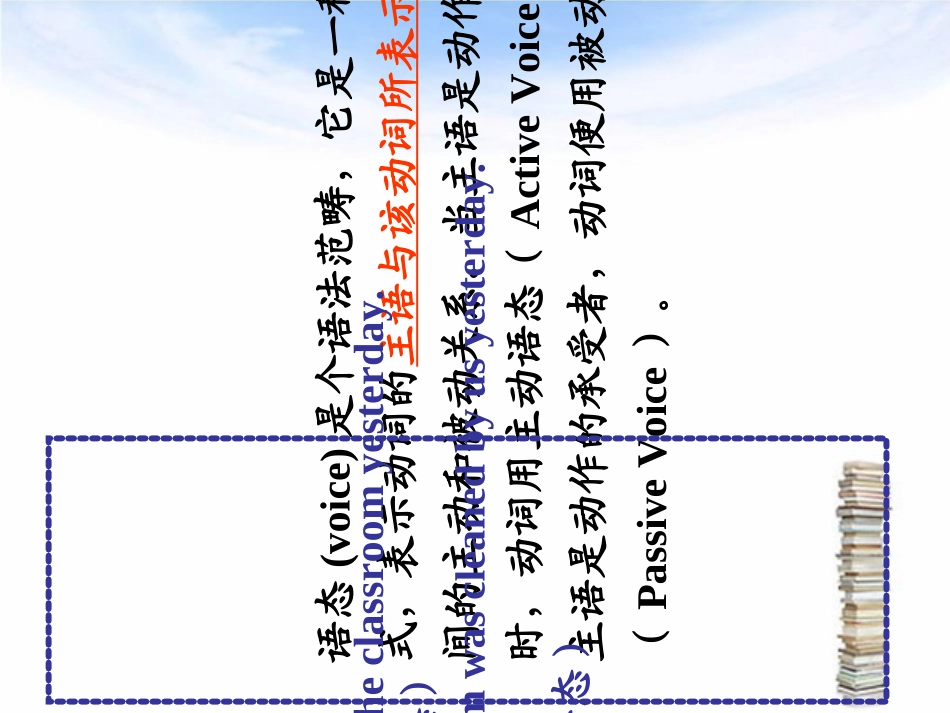 语态 (voice) 是个语法范畴，它是一种
式，表示动词的主语与该动词所表示
间的主动和被动关系。当主语是动作
时，动词用主动语态（ Active Voice
主语是动作的承受者，动词便用被动
（ Passive Voice ）。
he classroom yesterday.
）
m was cleaned by us yesterday.
态）